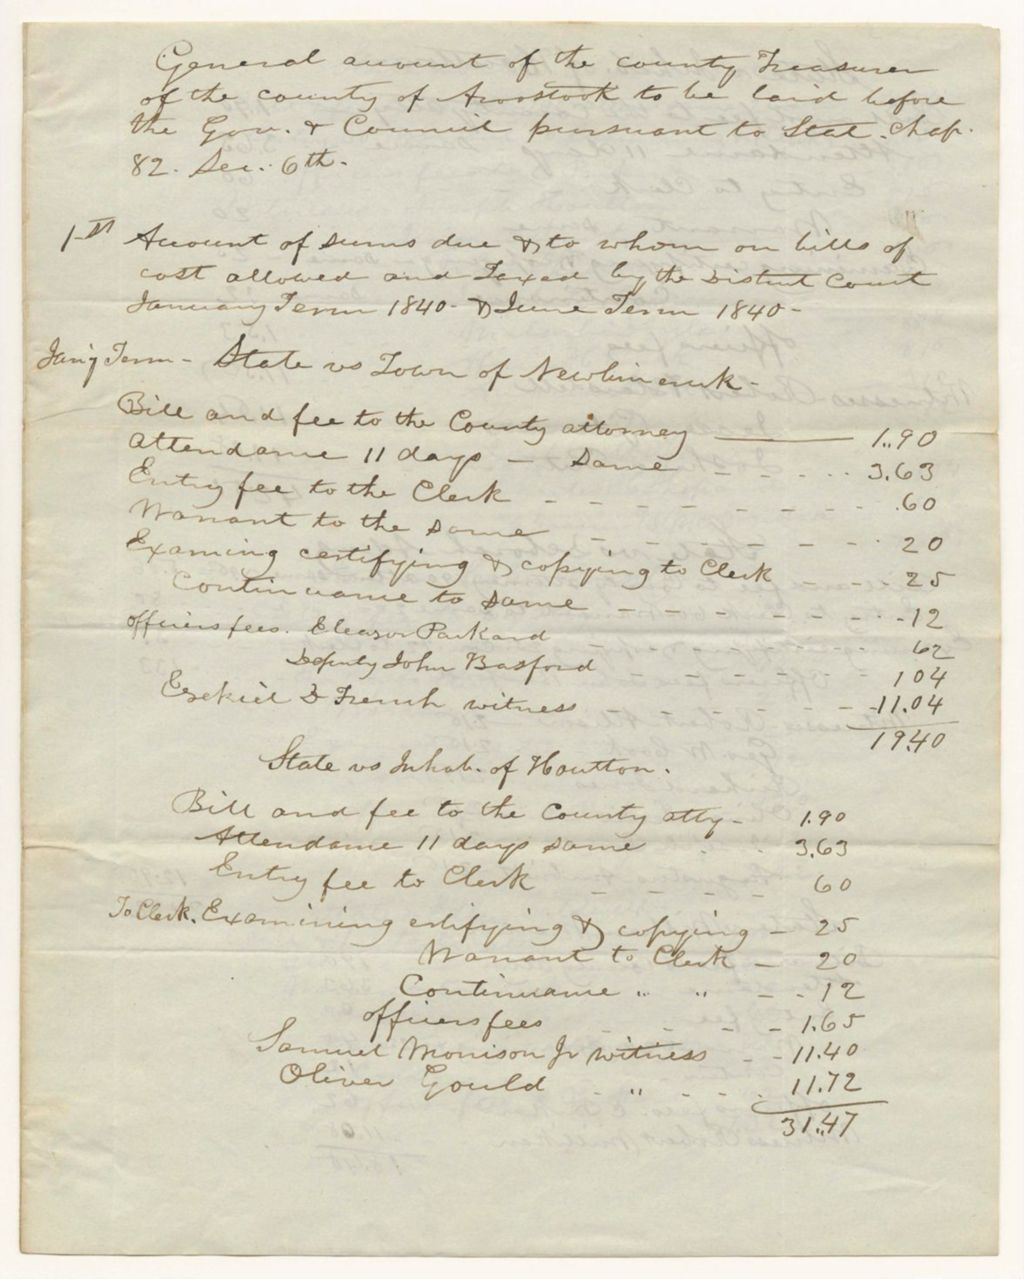 General account of the county Treasurer
of the county of Aroostook to be laid before
the Gov. & Council pursuant to Stat. Chap.
82. Sec. 6th.
1st Account of sums due & to whom on bills of
cost allowed and Taxed by the District Court
January Term 1840 - & June Term 1840 -
Jan'y Term - State vs Town of Newlimerick -
Bill and fee to the County attorney —— 1.90
Attendance 11 days - Same - - - - 3.63
Entry fee to the Clerk - - - - - - - - .60
Warrant to the same - - - - - - - 20
Examing certifying & copying to Clerk - - - 25
Continuance to same - - - - - - - 12
officers fees. Eleazor Packard 62
Deputy John Basford - - - - - - 104
Ezekiel D French witness - - - - - - 11.04
19.40
State vs Inhab. of Houlton.
Bill and fee to the County atty - 1.90
Attendance 11 days same - - 3.63
Entry fee to Clerk - - - 60
To Clerk. Examining certifying & copying - 25
Warrant to Clerk - 20
Continuance " " - - 12
officers fees - - - - - 1.65
Samuel Morrison Jr witness - - 11.40
Oliver Gould - " - - - 11.72
31.47